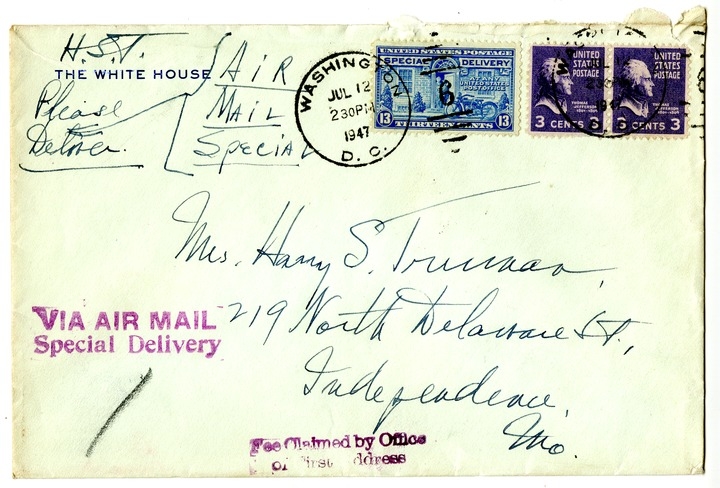 H.S.T.
THE WHITE HOUSE
Please
Deliver.
AIR
MAIL
SPECIAL
WASHINGTON
JUL 12
2 30 PM
1947
D. C.
UNITED STATES POSTAGE
SPECIAL DELIVERY
AT ANY
UNITED STATES
POST OFFICE
13 THIRTEEN CENTS 13
UNITED
STATES
POSTAGE
THOMAS
JEFFERSON
3 CENTS 3
UNITED
STATES
POSTAGE
THOMAS
JEFFERSON
3 CENTS 3
Mrs. Harry S. Truman,
219 North Delaware St.,
Independence,
Mo.
VIA AIR MAIL
Special Delivery
Fee Claimed by Office
of First Address